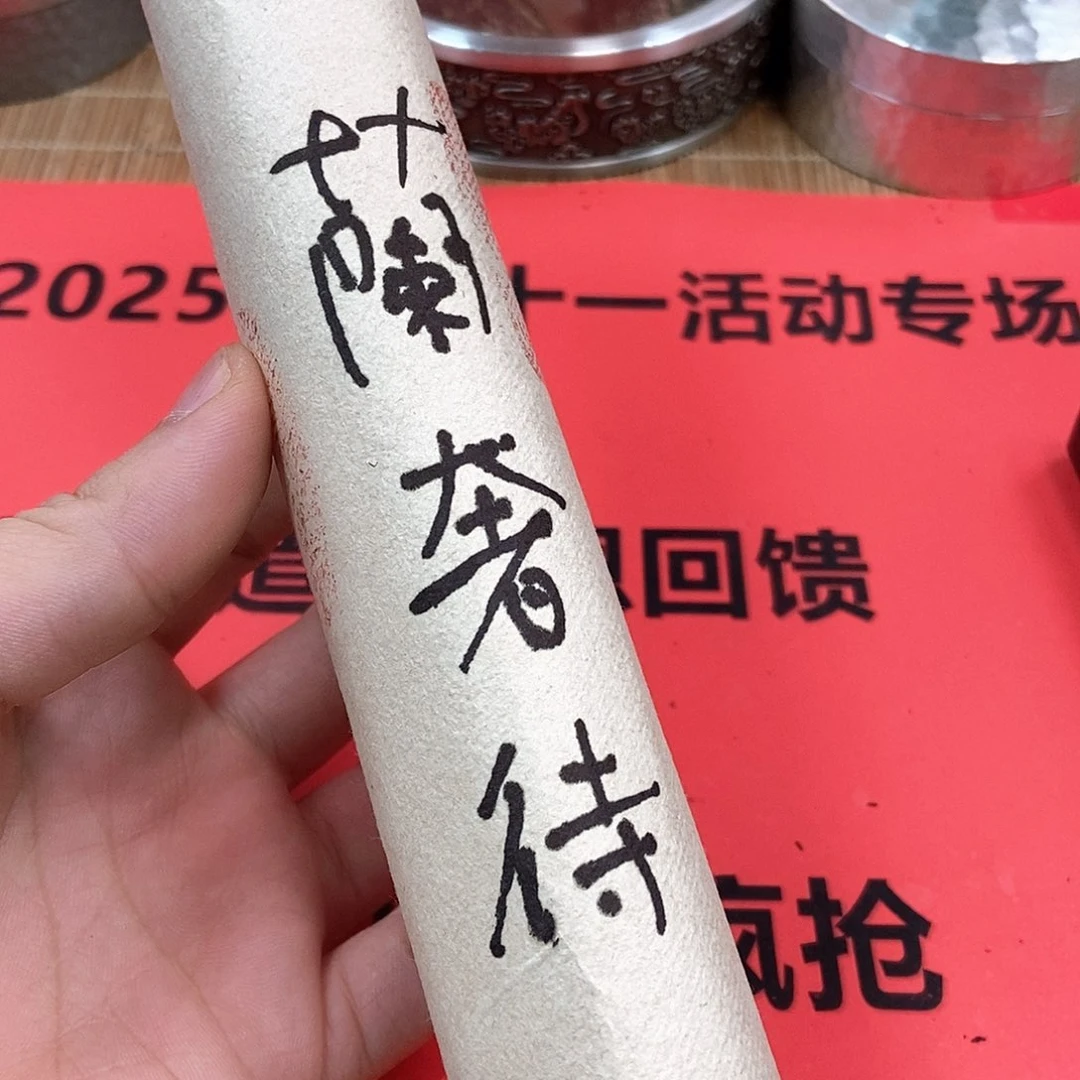 蘭奢待
2025 十一活动专场
回馈
疯抢